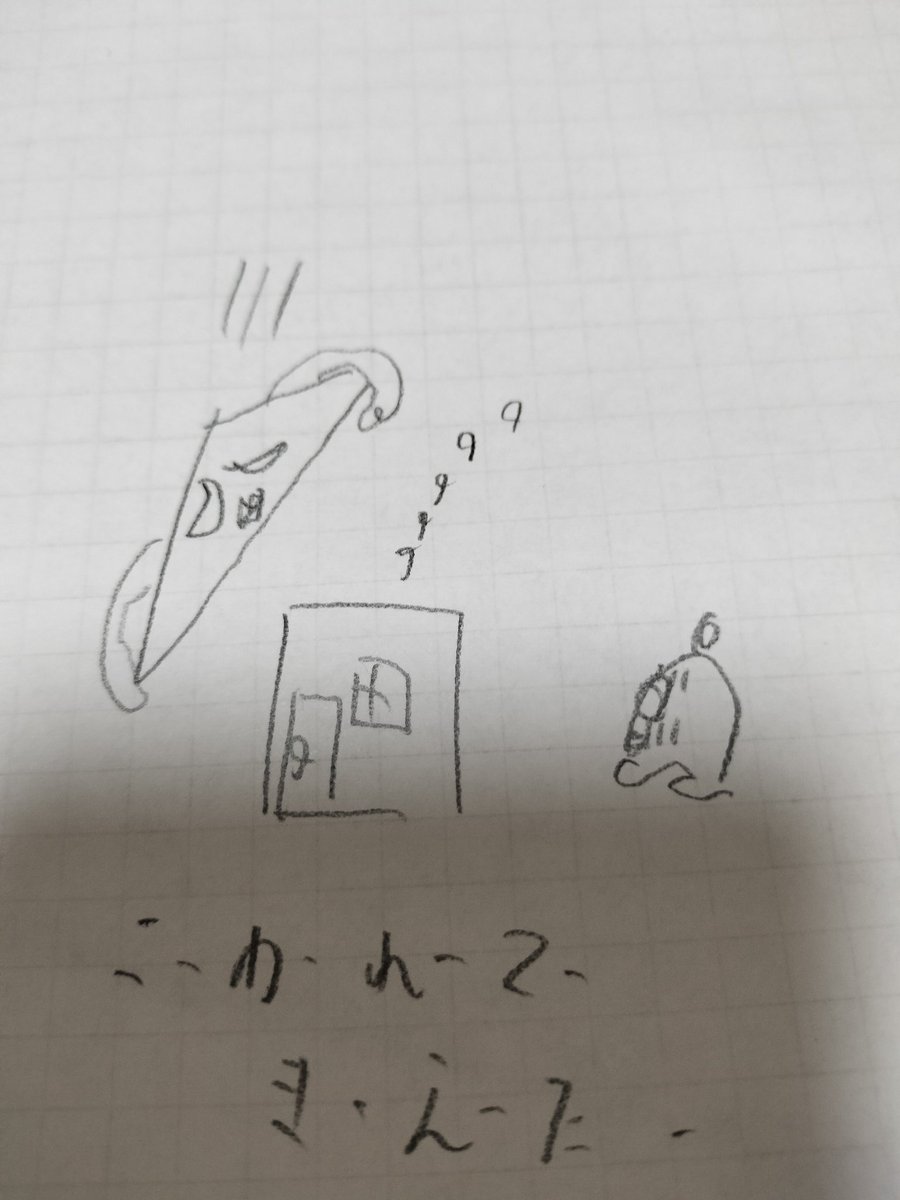 こーわーれーてー
きーえーたー